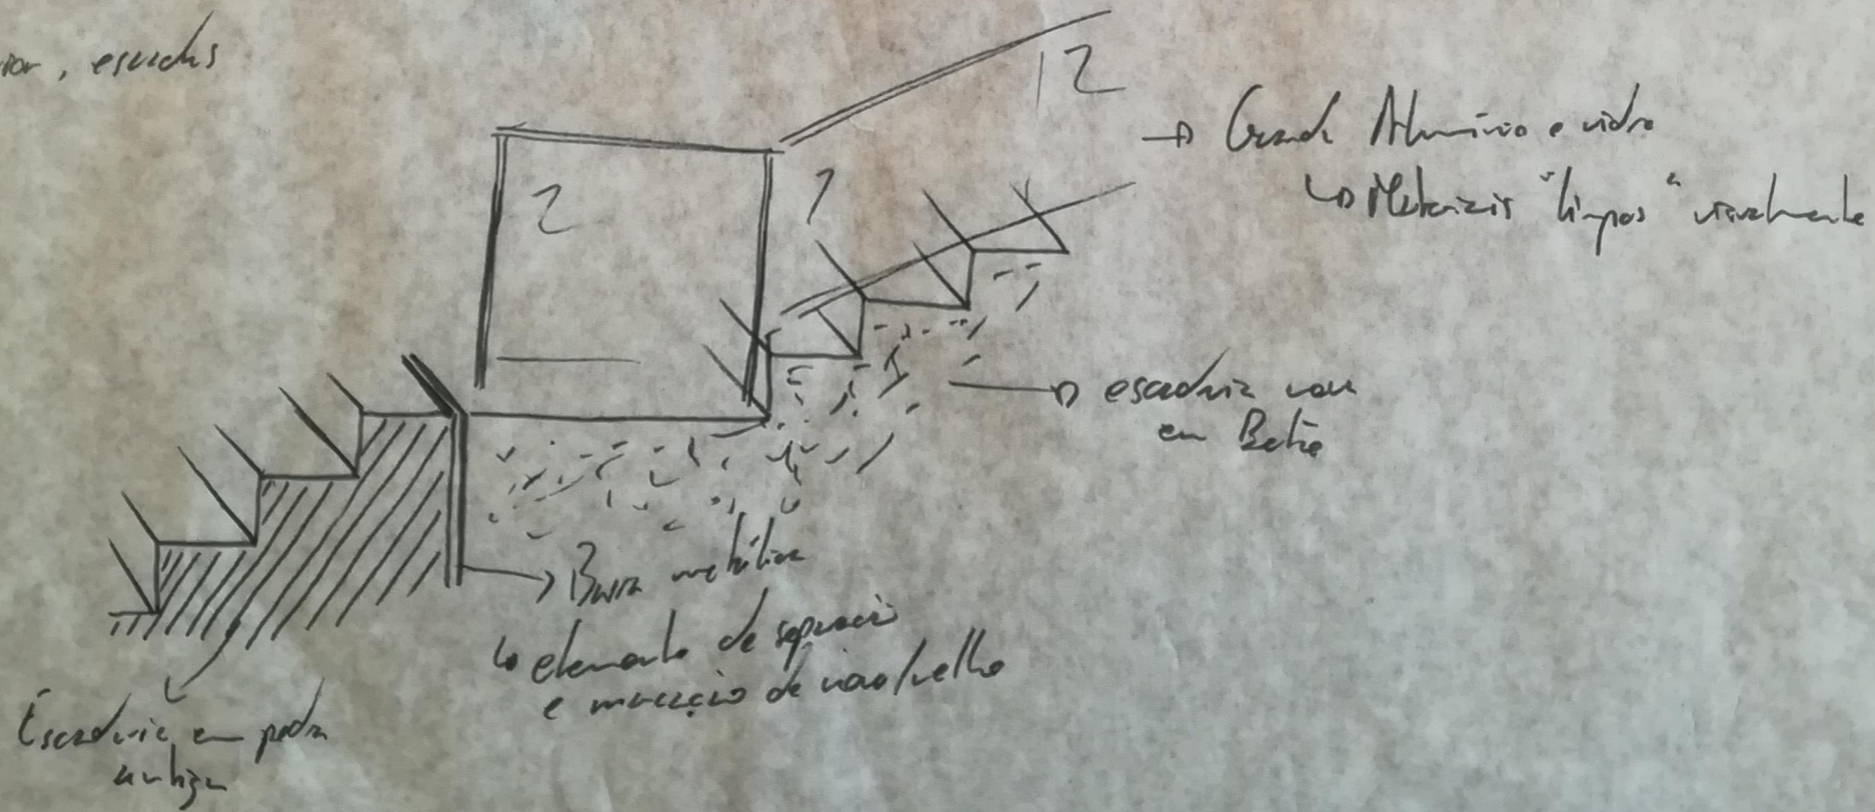 , escadas
Guarda Alumínio e vidro
↳ Materiais "limpos" visualmente
escadaria nova
em Betão
Barra metálica
↳ elemento de separação
e marcação de novo/velho
Escadaria em pedra
antiga